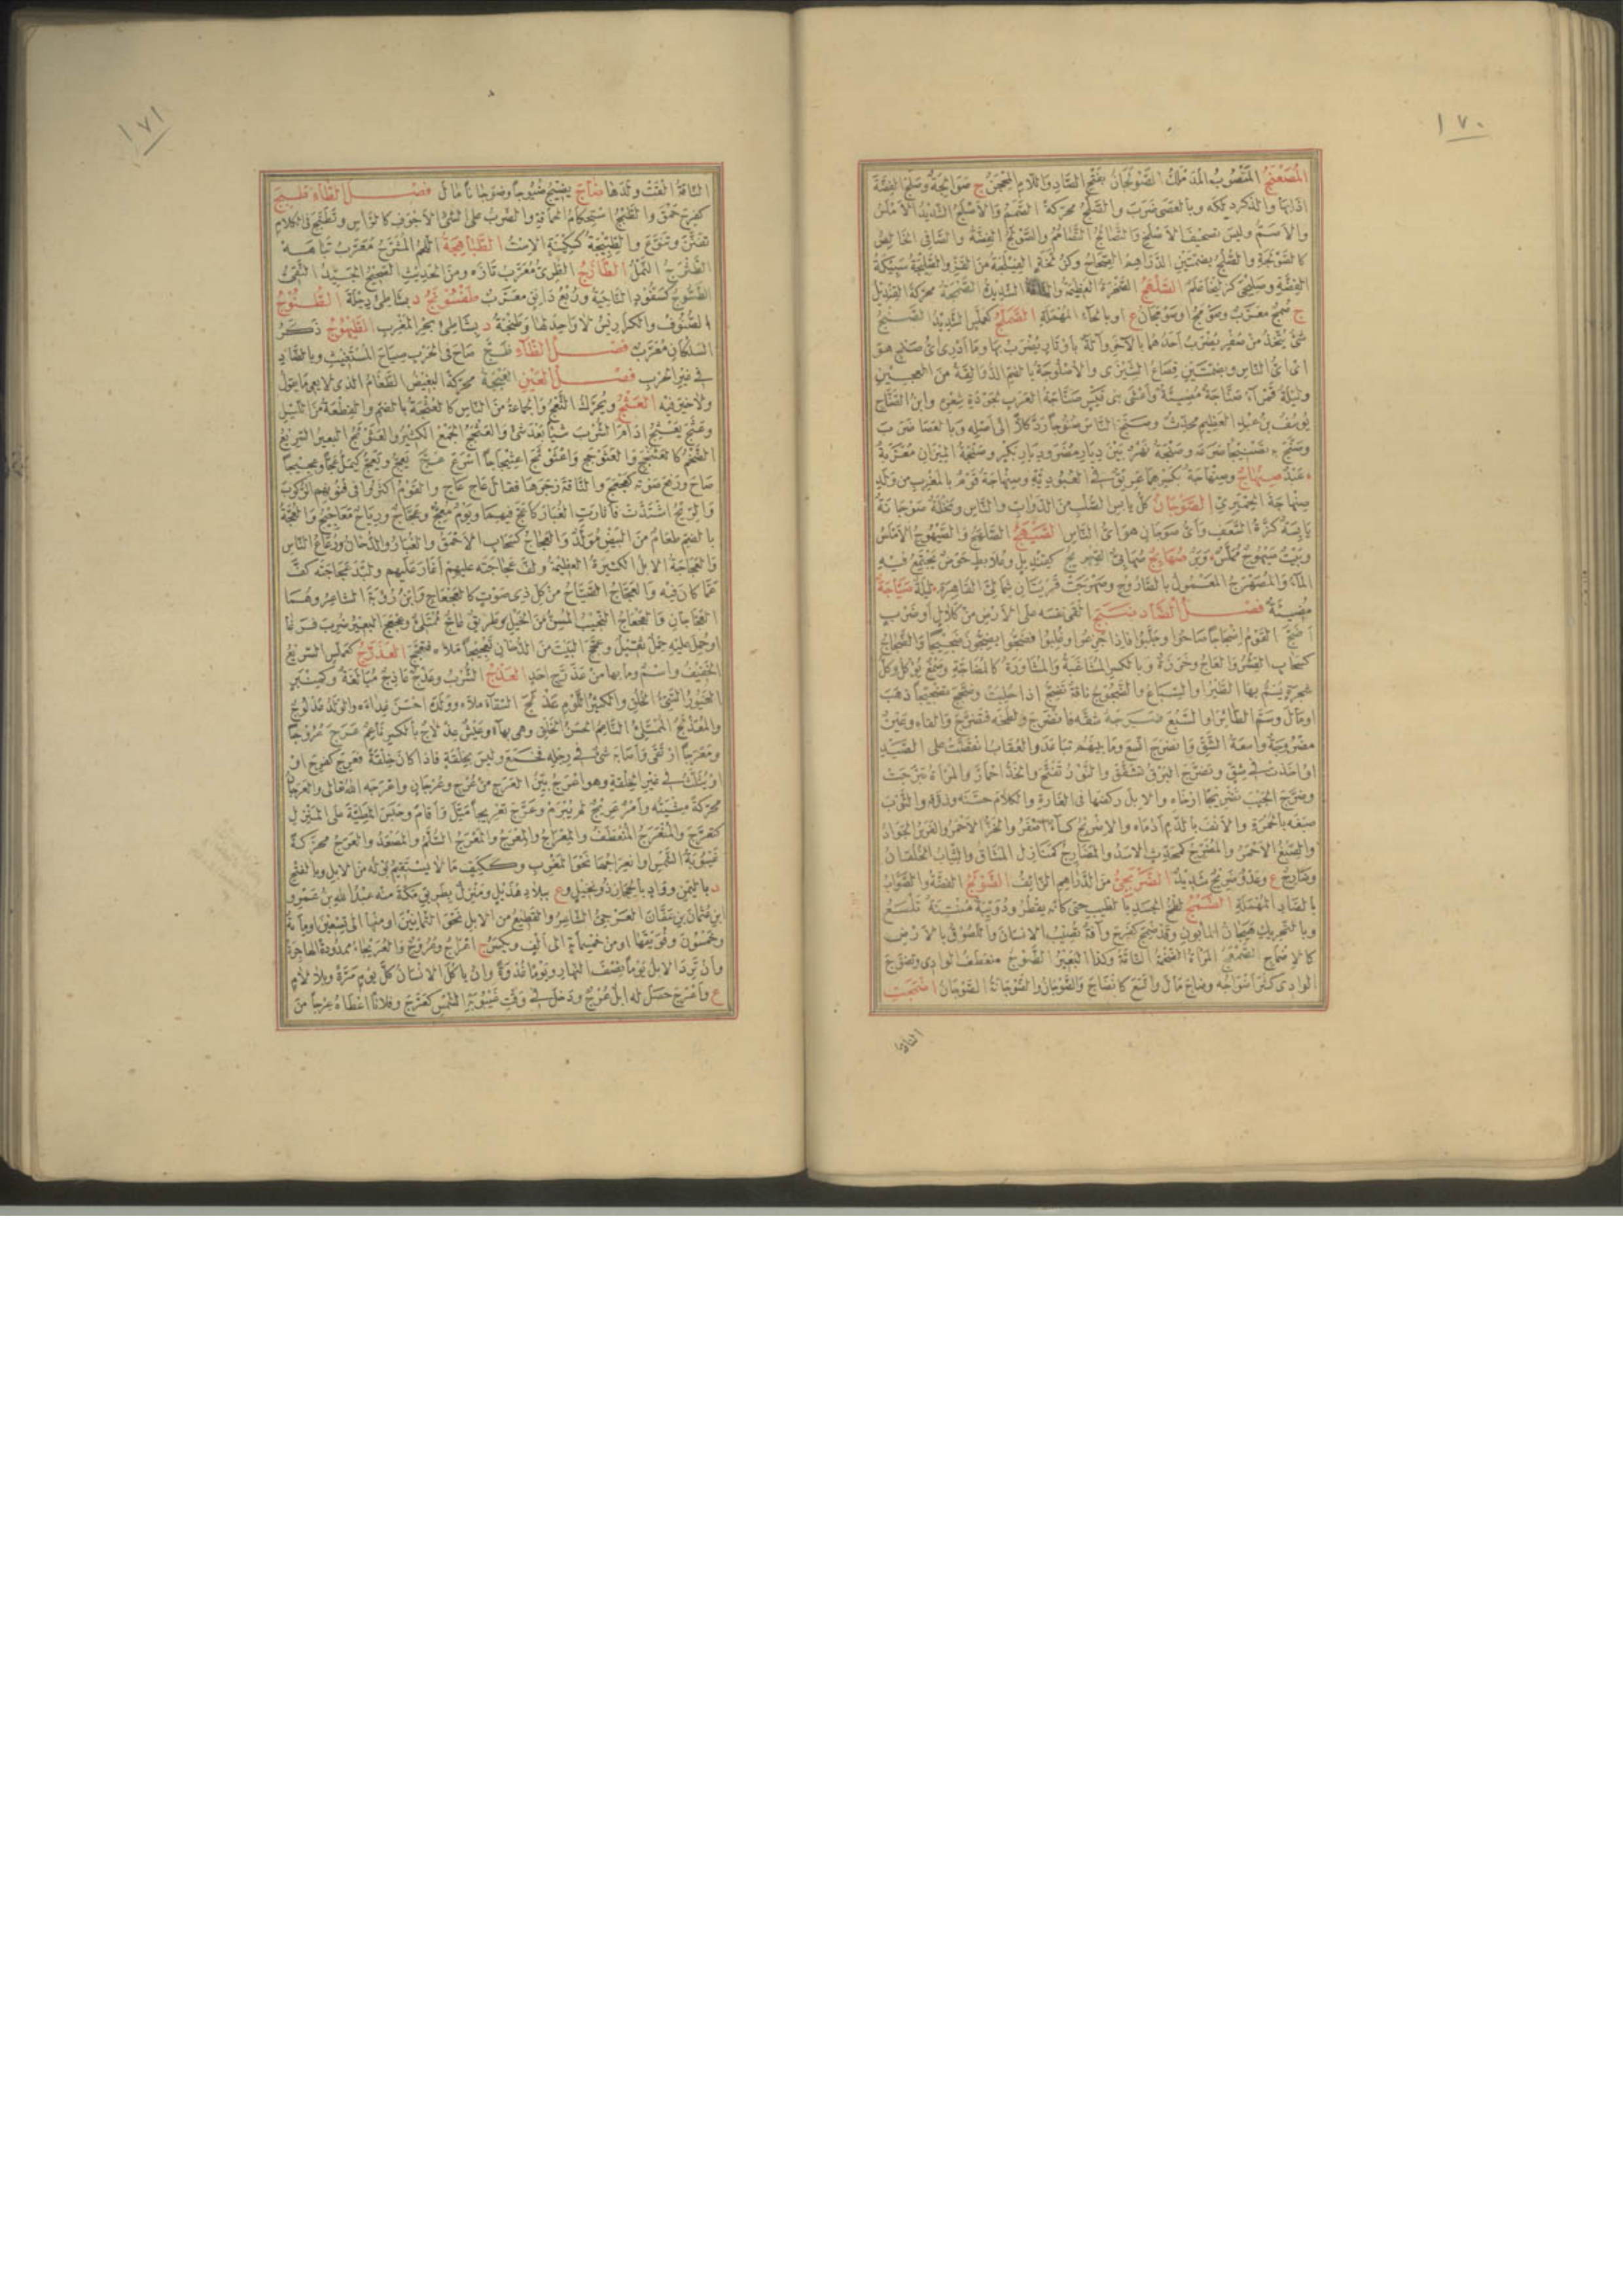 ١٧٠
المُصَعْنَجُ المَنْصُوبُ المُدَمْلَكُ الصَّوْلَجَانُ بفَتْحِ الصَّادِ وَاللَّامِ المِحْجَنُ ج صَوَالِجَةٌ وصَلَجَ الفِضَّةَ
اذَابَهَا والذكر دلكه وبالعصى ضَرَبَ والصَّلَجُ محرّكةً الصَّمَمُ وَالأَصْلَجُ الشَّدِيدُ الأَمْلَسُ
والأصَمّ وليس تصحيف الأصلخ والتصالج التصامم والصَّوْلَجُ الفِضَّةُ والصافى الخالص
كالصَّوْلَجَةِ والصُّلُجُ بضمتين الدّراهم الصِّحَاحُ وكزُلَّخَةٍ الفَيْلَجَةُ من القَزِّ والصَّلِيجَةُ سَبِيكَةُ
الفِضَّةِ
ج صَمَجٌ معرّب
شَىْءٌ يُتَّخَذُ من صُفْرٍ يُضْرَبُ أَحَدُهُمَا بالآخَرِ وآلَةٌ بأوتارٍ يُضْرَبُ بها وما أدرى أىّ صنج هو
اى اىّ الناس وبضمتين قِصَاعُ الشِّيزَى والأُصْنُوجَةُ بالضم الدُّوَالِقَةُ من العجين
وليلة قمراء صَنَّاجَةٌ مُضِيئَةٌ وأَعْشَى بنى قَيْسٍ صَنَّاجَةُ العَرَبِ لجودة شعره وابن الصَّنَّاج
يوسف بن عبد العظيم محدّث وصَنَجَ الناسَ صُنُوجًا رَدَّ كلًّا الى أصله وبالعصا ضرب
وصَنَّجَ به تَصْنِيجًا صَرَعَهُ وصَنْجَةُ نَهْرٌ بَيْنَ دِيَارِ مُضَرَ ودِيَارِ بَكْرٍ وصَنْجَةُ المِيزَانِ مُعَرَّبَةٌ
عَبْدٌ صِنْهَاجٌ وصِنْهَاجَةٌ بكسرهما عَرِيقٌ فى العُبُودِيَّةِ وصِنْهَاجَةُ قَوْمٌ بالمغرب من ولد
صِنْهَاجَةَ الحِمْيَرِىِّ الصَّوْجَانُ كُلُّ يابس الصُّلْبِ من الدَّوَابِّ والناس ونَخْلَةٌ صَوْجَانَةٌ
يابسة كزّة السعف وأىّ صوجان هو اىّ الناس الصَّيْهَجُ الصَّلْهَجُ والصَّيْهُوجُ الأَمْلَسُ
وبَيْتٌ صَيْهُوجٌ مُمَلَّسٌ وَبَرٌ صُهَابِجٌ صُهَابِىٌّ الصِّهْرِيجُ كقنديل وعُلَابِطٍ حَوْضٌ يَجْتَمِعُ فيه
الماء والمُصَهْرَجُ المعمول بالصَّارُوجِ وصَهْرَجْتُ قَرْيَتَانِ شمالى القاهرة لَيْلَةٌ صَيَّاجَةٌ
مُضِيئَةٌ فصل الضاد ضَبَجَ ألقى نفسه على الأرض من كَلَالٍ أو ضَرْبٍ
أَضَجَّ القَوْمُ إِضْجَاجًا صَاحُوا وجَلَّبُوا فاذا جَزِعُوا وغُلِبُوا فضَجُّوا يضِجُّونَ ضَجِيجًا وَالضَّجَاجُ
كسحاب القسر والعاج وخَرَزَةٌ وبالكسر المشاغبة والمشاورة كالمضاجّة وصَمْغٌ يؤكل وكل
شجرة يُسَمُّ بها الطير او السباع والضَّجُوجُ ناقة تَضِجُّ اذا حُلِبَتْ وضَجَّجَ تضجيجا ذهب
او مال وسَمَّ الطائر او السَّبُعَ ضَرَجَهُ شَقَّهُ فانْضَرَجَ ولَطَخَهُ فتَضَرَّجَ وألقاه وعَيْنٌ
مَضْرُوجَةٌ واسعة الشَّقِّ وانضرج اتّسع وما بينهم تباعد والعُقَابُ انقضّت على الصيد
او اخذت فى شِقٍّ وتضرّج البرق تشقّق والنَّوْرُ تفتّح والخَدُّ احمارّ والمرأة تبرّجت
وضَرَّجَ الجَيْبَ تضريجا ارخاه والابل ركضها فى الغارة والكلام حسّنه وزوّقه والثوب
صبغه بالحمرة والأنف بالدّم أدماه والإضْرِيجُ كساء أصفر والخزّ الأحمر والفرس الجواد
والصبغ الأحمر والمُضَرِّجُ كمحدّث الأسد والمَضَارِجُ كمنازل المشاقّ والثياب الخُلْقَانُ
وضَارِجٌ ع وعَدْوٌ ضَرِيجٌ شديد الضَّرْبَجِىُّ من الدراهم الزائف الضَّوْلَجُ الفضة والصواب
بالصاد المهملة الضَّمْجُ لطخ الجسد بالطيب حتى كأنه يقطر ودُوَيْبَّةٌ مُنْتِنَةٌ تَلْسَعُ
وبالتحريك هيجان المأبون وقد ضَمِجَ كفرح وآفة تصيب الانسان واللصوق بالأرض
كالإضماج الضَّمْعَجُ المرأة الضخمة الناقة وكذا البعير الضَّوْجُ منعطف الوادى وتضوّج
الوادى كثر اضواجه وضاج مال واتّسع كانضاج والضَّوْجَانُ والضَّوْجَانَةُ الصَّوْجَانُ أَضْهَجَتِ
الناقة
١٧١
الناقة ألقت ولدها ضَاجَ يَضِيجُ ضُيُوجًا وضَيَجَانًا مال فصل الطاء طَبِجَ
كفرح حَمُقَ والطَّبْجُ استحكام الحماقة والضرب على الشىء الأجوف كالرأس وتَطَبَّجَ فى الكلام
تفنّن وتنوّع والطِّبِّيجَةُ كسِكِّينَةٍ الإستُ الطَّبَاهِجَةُ اللحم المشرّح معرّب تَبَاهَهْ
الطَّثْرَجُ النمل الطَّازَجُ الطَّرِىُّ معرّب تازه ومن الحديث الصحيح الجيّد النَّقِىُّ
الطَّسُّوجُ كسَفُّودٍ الناحية ورُبْعُ دانق معرّب طَفْسُونَجُ د بشاطئ دجلة الطُّنُوجُ
الصنوف والكراريس لا واحد لها وطَنْجَةُ د بشاطئ بحر المغرب الطَّيْهُوجُ ذكر
السِّلْكَانِ معرّب فصل الظاء ظَجَّ صاح فى الحرب صياح المستغيث وبالضاد
فى غير الحرب فصل العين العَبَجَةُ محرّكة البغيض الطَّغَامُ الذى لا يعى ما يقول
ولا خير فيه العَثْجُ ويحرّك الثَّعْجُ والجماعة من الناس كالعُثْجَةِ بالضم والقطعة من الليل
وعَثَجَ يَعْثِجُ ادام الشرب شيئا بعد شىء والعَثَجُ الجمع الكثير والعَثَوْثَجُ البعير السريع
الضخم كالعَثَنْجَجِ والعَثَوْجَجِ واعْثَوْثَجَ اعثيجاجا أسرع عَجَّ يَعِجُّ ويَعَجُّ كيملّ عَجًّا وعَجِيجًا
صاح ورفع صوته كعجعج والناقة زجرها فقال عاج عاج والقوم أكثروا فى فنونهم الركوب
والريح اشتدّت فأثارت الغبار كأعجّ فيهما ويوم مُعِجٌّ وعَجَّاجٌ ورياح مَعَاجِيجُ والعُجَّةُ
بالضم طعام من البيض مولّد والعَجَاجُ كسحاب الأحمق والغبار والدخان ورَعَاعُ الناس
والعَجَاجَةُ الابل الكثيرة العظيمة ولَفَّ عَجَاجَتَهُ عليهم أغار عليهم ولَبَّدَ عَجَاجَتَهُ كفّ
عمّا كان فيه والعَجَّاجُ الصَّيَّاحُ من كلّ ذى صوت كالعَجْعَاجِ وابن رُؤْبَةَ الشاعر وهما
العَجَّاجَانِ والعَجْعَاجُ النجيب المُسِنُّ من الخيل وطريق عَاجٌّ ممتلئ وعَجْعَجَ البعير ضُرِبَ فرغا
او حُمِلَ عليه حِمْلٌ ثقيل وعَجَّجَ البيت من الدخان تعجيجا ملأه فتعجّج العَذَرَّجُ كعملّس السريع
الخفيف واسم وما بها من عَذَرَّجٍ احد العَذْجُ الشرب وعَذْجٌ عاذج مبالغة وكمنبر
الغيور السيّئ الخلق والكثير اللوم عَذْلَجَ السقاء ملأه وولده احسن غذاءه والولد عُذْلُوجٌ
والمُعَذْلَجُ الممتلئ الناعم الحسن الخلق وهى بهاء وعَيْشٌ عِذْلَاجٌ بالكسر ناعم عَرَجَ عُرُوجًا
ومَعْرَجًا ارتقى وأصابه شىء فى رجله فخَمَعَ وليس بخِلْقَةٍ فاذا كان خلقة فعَرِجَ كفرح او
او يثلّث فى غير الخلقة وهو أعرج بيّن العَرَجِ من عُرْجٍ وعُرْجَانٍ وأعرجه الله تعالى والعَرَجَانُ
محرّكة مِشْيَتُهُ وأمر عَرِيجٌ لم يُبْرَمْ وعَرَّجَ تعريجا ميّل وأقام وحبس المطيّة على المنزل
كتعرّج والمُنْعَرَجُ المُنْعَطَفُ والمِعْرَاجُ والمِعْرَجُ والمَعْرَجُ السُّلَّمُ والمصعد والعَرَجُ محرّكة
غيبوبة الشمس او انعراجها نحو المغرب وككتف ما لا يستقيم بوله من الابل وبالفتح
د باليمن وواد بالحجاز ذو نخيل وع ببلاد هذيل ومنزل بطريق مكّة منه عبد الله بن عمرو
ابن عثمان بن عفّان العَرْجِىُّ الشاعر والقطيع من الابل نحو الثمانين او منها الى تسعين او مائة
وخمسون وفويقها او من خمسمائة الى ألف ويكسر ج أعراج وعُرُوج والعُرَيْجَاءُ ممدودة الهاجرة
وأن تَرِدَ الابل يوما نصف النهار ويوما غدوة وأن يأكل الانسان كلّ يوم مرّة وبلا لام
ع وأَعْرَجَ حصل له ابل عُرْجٌ ودخل فى وقت غيبوبة الشمس كعَرَّجَ وفلانا اعطاه عَرْجًا من